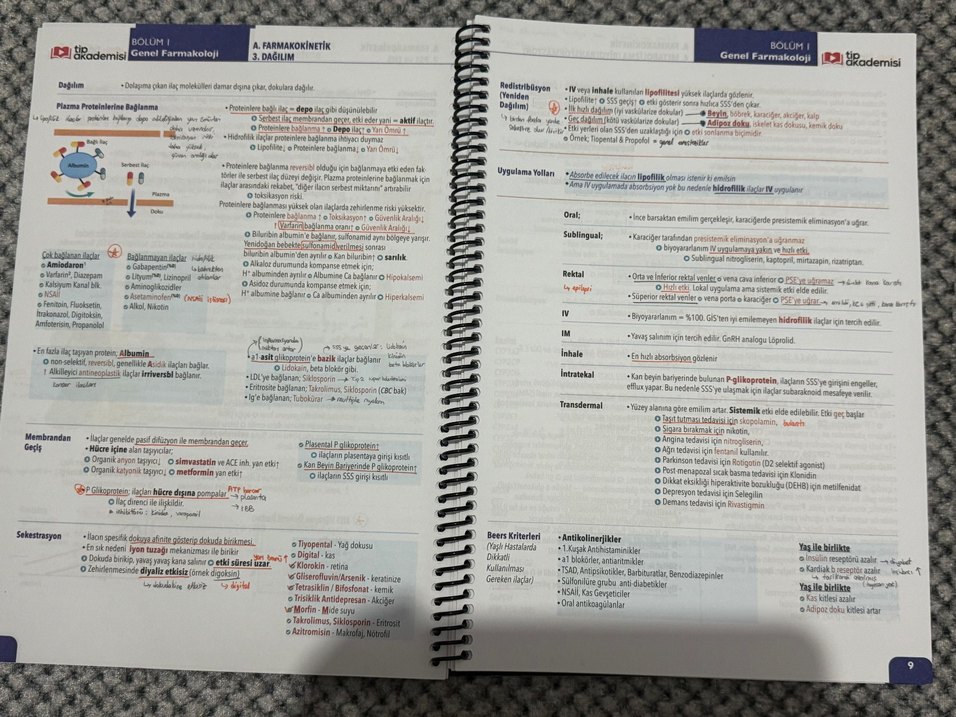 tıp
akademisi
BÖLÜM I
Genel Farmakoloji
A. FARMAKOKİNETİK
3. DAĞILIM
Dağılım
• Dolaşıma çıkan ilaç molekülleri damar dışına çıkar, dokulara dağılır.
Plazma Proteinlerine Bağlanma
Bağlı ilaç
Albumin
Serbest ilaç
Plazma
Doku
• Proteinlere bağlı ilaç = depo ilaç gibi düşünülebilir
Serbest ilaç membrandan geçer, etki eder yani = aktif ilaçtır.
Proteinlere bağlanma ↑ Depo ilaç↑ Yarı Ömrü ↑
• Hidrofilik ilaçlar proteinlere bağlanma ihtiyacı duymaz
Lipofilite↓ Proteinlere bağlanma↓ Yarı Ömrü↓
• Proteinlere bağlanma reversibl olduğu için bağlanmaya etki eden fak-
törler ile serbest ilaç düzeyi değişir. Plazma proteinlerine bağlanmak için
ilaçlar arasındaki rekabet, "diğer ilacın serbest miktarını" artırabilir
toksisite riski.
Proteinlere bağlanması yüksek olan ilaçlarda zehirlenme riski yüksektir.
Proteinlere bağlanma ↑ Toksikasyon↑ Güvenlik Aralığı↓
↑ Varfarin bağlanma oranı↑ Güvenlik Aralığı↓
Biluribin albumin'e bağlanır, sulfonamid aynı bölgeye yarışır.
Yenidoğan bebekte sulfonamid verilmesi sonrası
biluribin albumin'den ayrılır Kan biluribin↑ sarılık
Alkaloz durumunda kompanse etmek için;
H⁺ albuminden ayrılır Albumine Ca bağlanır Hipokalsemi
Asidoz durumunda kompanse etmek için;
H⁺ albumine bağlanır Ca albuminden ayrılır Hiperkalsemi
Çok bağlanan ilaçlar
Amiodaron¹
Varfarin², Diazepam
Kalsiyum Kanal blk.
NSAİİ
Fenitoin, Fluoksetin,
İtrakonazol, Digitoksin,
Amfoterisin, Propanolol
Bağlanmayan ilaçlar
Gabapentin
Lityum, Lizinopril
Aminoglikozidler
Asetaminofen
Alkol, Nikotin
• En fazla ilaç taşıyan protein; Albumin
non-selektif, reversibl, genellikle Asidik ilaçları bağlar.
↑ Alkilleyici antineoplastik ilaçlar irriversbl bağlanır.
kanser ilaçları
a1-asit glikoprotein'e bazik ilaçlar bağlanır
Lidokain, beta blokör gibi.
• LDL'ye bağlanan; Siklosporin
• Eritrosite bağlanan; Takrolimus, Siklosporin (CBC bak)
• Ig'e bağlanan; Tubokürar
Membrandan
Geçiş
• İlaçlar genelde pasif difüzyon ile membrandan geçer.
• Hücre içine alan taşıyıcılar;
Organik anyon taşıyıcı↓ simvastatin ve ACE inh. yan etki↑
Organik katyonik taşıyıcı↓ metformin yan etki↑
P Glikoprotein; ilaçları hücre dışına pompalar
ATP harcar
→ plasenta
→ KBB
İlaç direnci ile ilişkilidir.
Plasental P glikoprotein↑
ilaçların plasentaya girişi kısıtlı
Kan Beyin Bariyerinde P glikoprotein↑
ilaçların SSS girişi kısıtlı
Sekestrasyon
• İlacın spesifik dokuya afinite gösterip dokuda birikmesi.
• En sık nedeni iyon tuzağı mekanizması ile birikir
Dokuda birikip, yavaş yavaş kana salınır etki süresi uzar
yarı ömrü ↑
Zehirlenmesinde diyaliz etkisiz (örnek digoksin)
digital
Tiyopental - Yağ dokusu
Digital - kas
Klorokin - retina
Gliserofluvin/Arsenik - keratinize
Tetrasiklin / Bifosfonat - kemik
Trisiklik Antidepresan - Akciğer
Morfin - Mide suyu
Takrolimus, Siklosporin - Eritrosit
Azitromisin - Makrofaj, Nötrofil
BÖLÜM I
Genel Farmakoloji
tıp
akademisi
Redistribüsyon
(Yeniden
Dağılım)
• IV veya inhale kullanılan lipofilitesi yüksek ilaçlarda gözlenir.
• Lipofilite↑ SSS geçiş↑ etki gösterir sonra hızlıca SSS'den çıkar.
İlk hızlı dağılım (iyi vaskülarize dokular) Beyin, böbrek, karaciğer, akciğer, kalp
Geç dağılım (kötü vaskülarize dokular) Adipoz doku, iskelet kas dokusu, kemik doku
• Etki yerleri olan SSS'den uzaklaştığı için etki sonlanma biçimidir.
Örnek; Tiopental & Propofol = genel anestezikler
Uygulama Yolları
• Absorbe edilecek ilacın lipofilik olması istenir ki emilsin
• Ama IV uygulamada absorbsiyon yok bu nedenle hidrofilik ilaçlar IV uygulanır
Oral;
• İnce barsaktan emilim gerçekleşir, karaciğerde presistemik eliminasyon'a uğrar.
Sublingual;
• Karaciğer tarafından presistemik eliminasyon'a uğranmaz
biyoyararlanım IV uygulamaya yakın ve hızlı etki.
Sublingual nitrogliserin, kaptopril, mirtazapin, rizatriptan.
Rektal
epilepsi
Orta ve İnferior rektal venler vena cava inferior PSE'ye uğramaz
Hızlı etki. Lokal uygulama ama sistemik etki elde edilir.
• Süperior rektal venler vena porta karaciğer PSE'ye uğrar
IV
• Biyoyararlanım = %100. GİS'ten iyi emilemeyen hidrofilik ilaçlar için tercih edilir.
IM
• Yavaş salınım için tercih edilir. GnRH analogu Löprolid.
İnhale
• En hızlı absorbsiyon gözlenir
İntratekal
• Kan beyin bariyerinde bulunan P-glikoprotein, ilaçların SSS'ye girişini engeller,
efflux yapar. Bu nedenle SSS'ye ulaşmak için ilaçlar subaraknoid mesafeye verilir.
Transdermal
• Yüzey alanına göre emilim artar. Sistemik etki elde edilebilir. Etki geç başlar
Taşıt tutması tedavisi için skopolamin, bulantı
Sigara bırakmak için nikotin,
Angina tedavisi için nitrogliserin,
Ağrı tedavisi için fentanil kullanılır.
Parkinson tedavisi için Rotigotin (D2 selektif agonist)
Post-menapozal sıcak basma tedavisi için Klonidin
Dikkat eksikliği hiperaktivite bozukluğu (DEHB) için metilfenidat
Depresyon tedavisi için Selegilin
Demans tedavisi için Rivastigmin
Beers Kriterleri
(Yaşlı Hastalarda
Dikkatli
Kullanılması
Gereken ilaçlar)
• Antikolinerjikler
• 1.Kuşak Antihistaminikler
• a1 blokörler, antiaritmikler
• TSAD, Antipsikotikler, Barbituratlar, Benzodiazepinler
• Sülfonilüre grubu anti-diabetikler
• NSAİİ, Kas Gevşeticiler
• Oral antikoagülanlar
Yaş ile birlikte
İnsülin reseptörü azalır
Kardiak b reseptör azalır
Yaş ile birlikte
Kas kitlesi azalır
Adipoz doku kitlesi artar
9